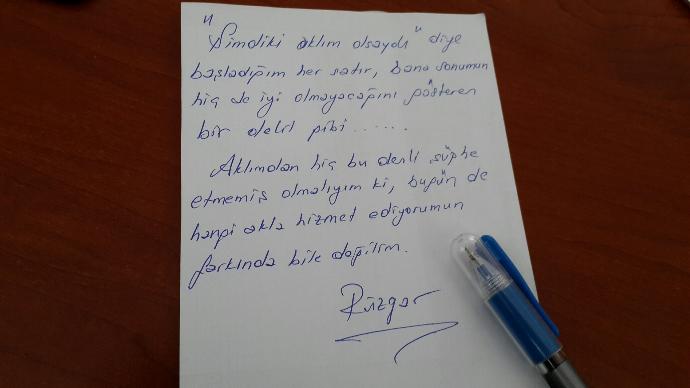 "Şimdiki aklım olsaydı" diye
başladığım her satır, bana sonumun
hiç de iyi olmayacağını gösteren
bir delil gibi......
Aklımdan hiç bu denli şüphe
etmemiş olmalıyım ki, bugün de
hangi akla hizmet ediyorumun
farkında bile değilim.
Rüzgar